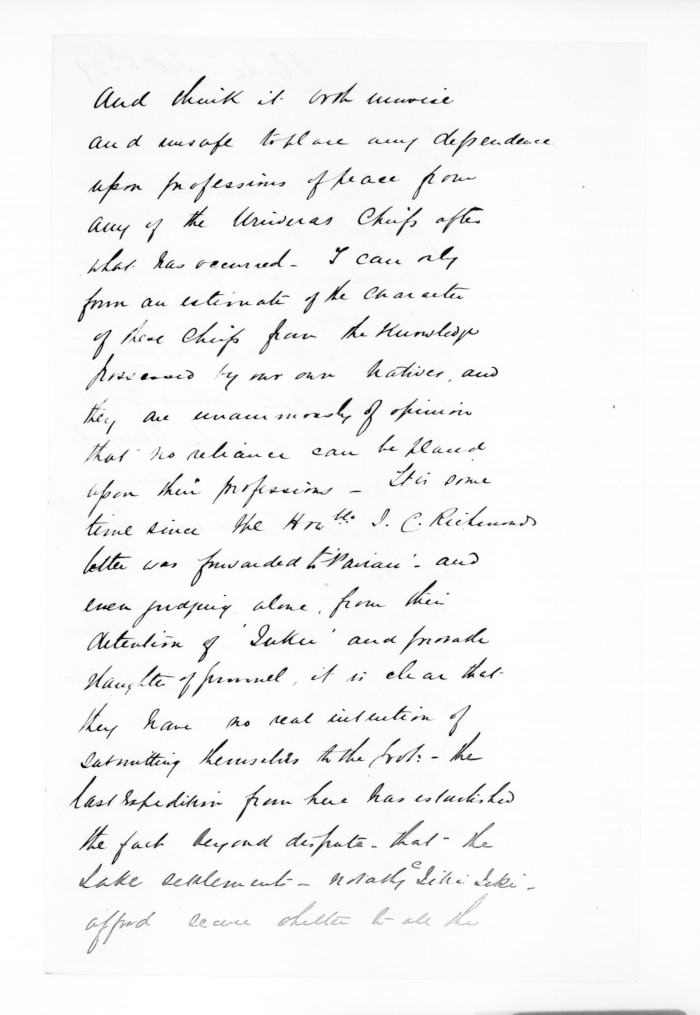 And think it both unwise
and unsafe to place any dependence
upon professions of peace from
any of the Uriwera Chiefs after
what has occurred - I can only
form an estimate of the character
of these Chiefs from the Knowledge
possessed by our own Natives, and
they are unanimously of opinion
that no reliance can be placed
upon their professions - It is some
time since the Honble J. C. Richmonds
letter was forwarded to - and
even judging alone, from their
detention of and
slaughter of, it is clear that
they have no real intention of
submitting themselves to the Govt: - the
last expedition from here has established
the fact beyond dispute - that - the
Lake settlement - notably Tiki Tiki -
afford secure shelter to all the